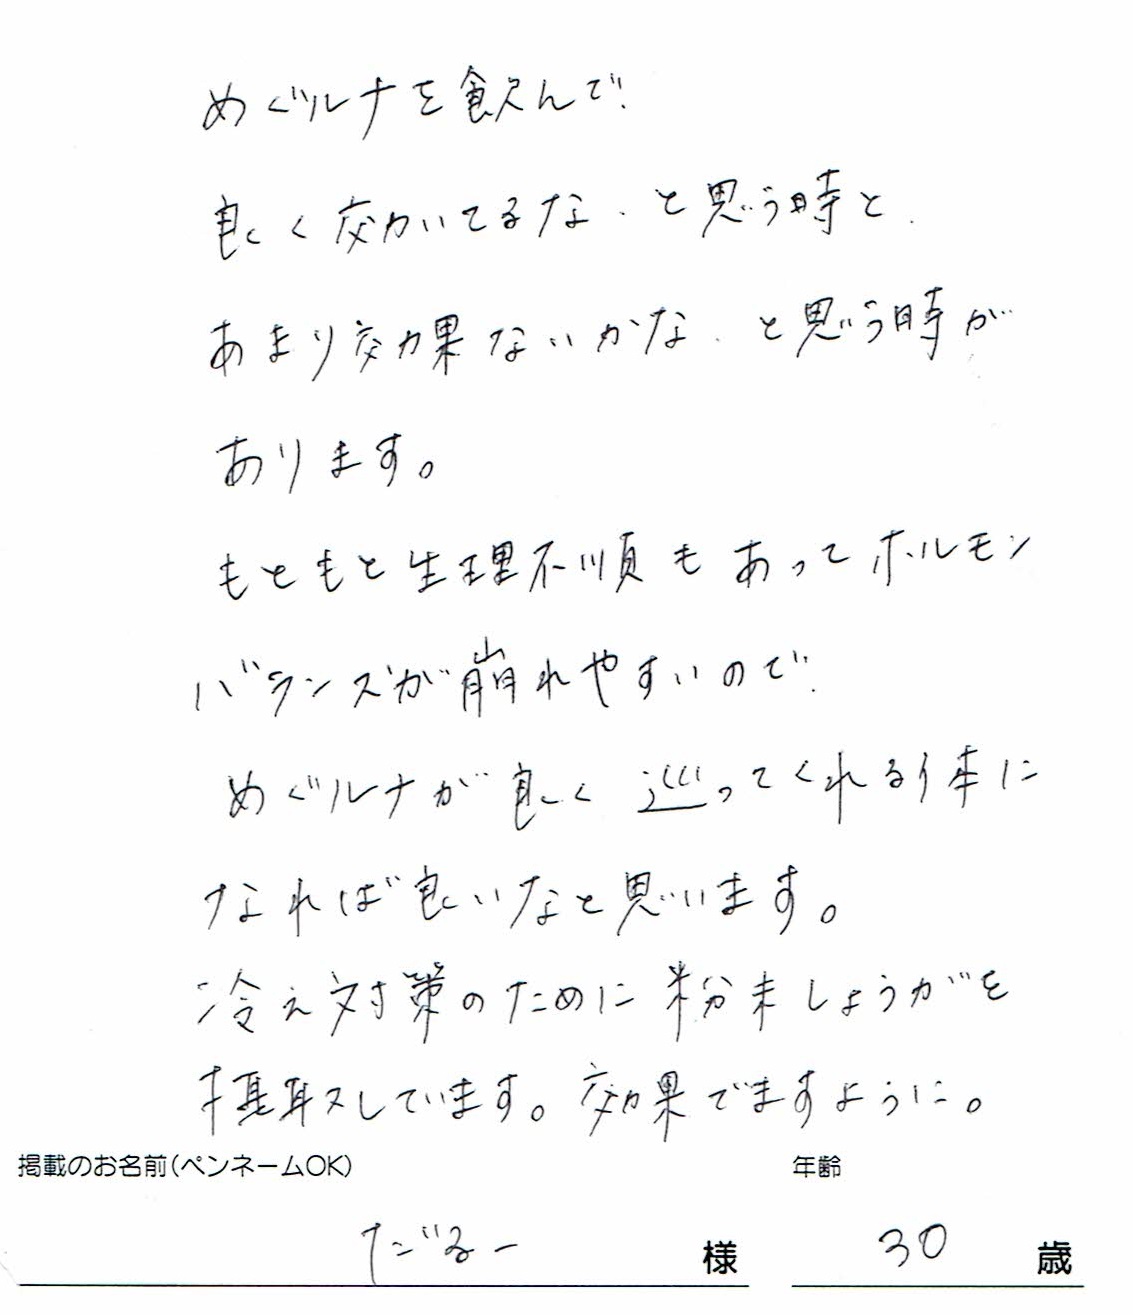 めぐルナを飲んで、
良く効いてるな、と思う時と、
あまり効果ないかな、と思う時が
あります。
もともと生理不順もあってホルモン
バランスが崩れやすいので、
めぐルナが良く巡ってくれる体に
なれば良いなと思います。
冷え対策のために粉末しょうがを
摂取しています。効果でますように。
掲載のお名前(ペンネームOK) 年齢
だるー 様 30 歳